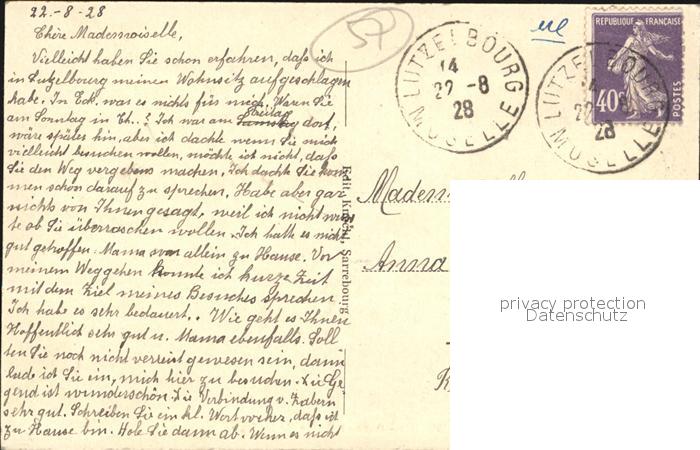 22.-8-28
Chère Mademoiselle,
Vielleicht haben Sie schon erfahren, daß ich
in Lutzelbourg meinen Wohnsitz aufgeschlagen
habe. In Eck. was es nichts für mich. Waren Sie
am Sonntag in Eck.? Ich war am Freitag dort,
wäre später hin, aber ich dachte wenn Sie mich
vielleicht besuchen wollen, möchte ich nicht, daß
Sie den Weg vergebens machen. Ich dachte Sie kom
men schon darauf zu sprechen, Habe aber gar
nichts von Ihnen gesagt, weil ich nicht wuß
te ob Sie überraschen wollen. Ich hatte es nicht
gut getroffen. Mama war allein zu Hause. Vor
meinem Weggehen konnte ich kurze Zeit
mit dem Ziel meines Besuches sprechen.
Ich habe es sehr bedauert.. Wie geht es Ihnen
Hoffentlich sehr gut u. Mama ebenfalls. Soll
ten Sie noch nicht verreist gewesen sein, dann
lade ich Sie ein, mich hier zu besuchen. Die Ge
gend ist wunderschön. Die Verbindung v. Zabern
sehr gut. Schreiben Sie ein kl. Wort vorher, daß ich
zu Hause bin. Hole Sie dann ab. Wenn es nicht
57
LUTZELBOURG
14
22 -8
28
MOSELLE
REPUBLIQUE FRANÇAISE
40c
POSTES
LUTZELBOURG
14
22
28
MOSELLE
Sarrebourg
Madem
Anna
privacy protection
Datenschutz